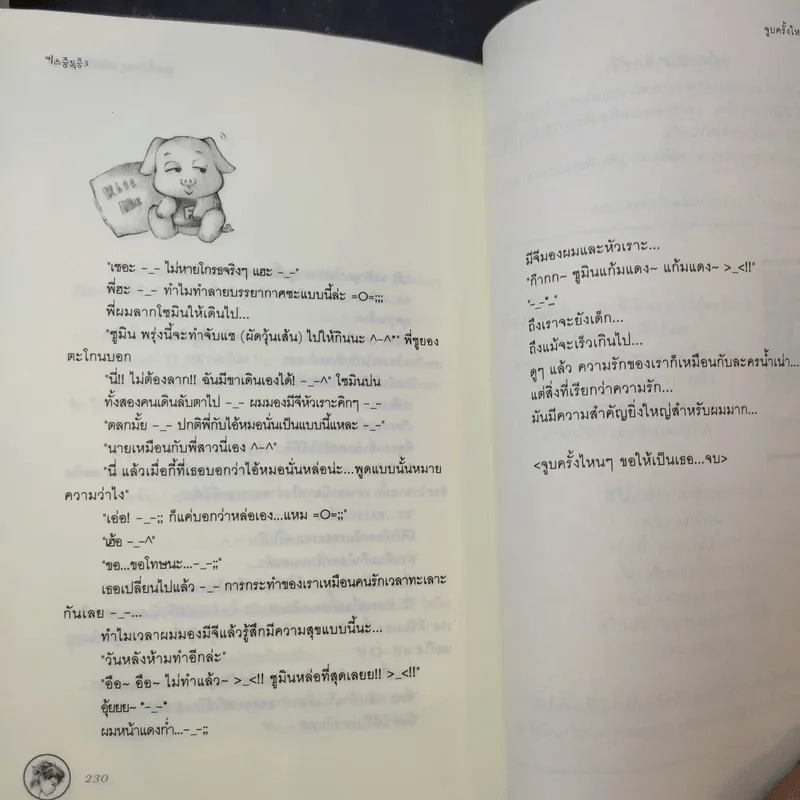 키스중독증3
Kiss
Me
F
"เชอะ -_- ไม่หายโกรธจริงๆ แฮะ -_-"
พี่ฮะ -_- ทำไมทำลายบรรยากาศซะแบบนี้ล่ะ =O=;;;
พี่ผมลากโซมินให้เดินไป...
"ซูมิน พรุ่งนี้จะทำจับแช (ผัดวุ้นเส้น) ไปให้กินนะ ^-^*" พี่ซูยอง
ตะโกนบอก
"นี่!! ไม่ต้องลาก!! ฉันมีขาเดินเองได้! -_-^" โซมินบ่น
ทั้งสองคนเดินลับตาไป -_- ผมมองมีจีหัวเราะคิกๆ -_-
"ตลกมั้ย -_- ปกติพี่กับไอ้หมอนั่นเป็นแบบนี้แหละ -_-"
"นายเหมือนกับพี่สาวนี่เอง ^-^"
"นี่ แล้วเมื่อกี้ที่เธอบอกว่าไอ้หมอนั่นหล่อน่ะ...พูดแบบนั้นหมาย
ความว่าไง"
"เอ่อ! -_-;; ก็แค่บอกว่าหล่อเอง...แหม =O=;;"
"เฮ้อ -_-^"
"ขอ...ขอโทษนะ...-_-;;"
เธอเปลี่ยนไปแล้ว -_- การกระทำของเราเหมือนคนรักเวลาทะเลาะ
กันเลย -_-...
ทำไมเวลาผมมองมีจีแล้วรู้สึกมีความสุขแบบนี้นะ...
"วันหลังห้ามทำอีกล่ะ"
"อือ~ อือ~ ไม่ทำแล้ว~ >_<!! ซูมินหล่อที่สุดเลยย!! >_<!!"
อุ้ยยย~ *-_-*
ผมหน้าแดงก่ำ...-_-;;
230
จูบครั้งไห
มีจีมองผมและหัวเราะ...
"ก๊ากก~ ซูมินแก้มแดง~ แก้มแดง~ >_<!!"
"-_-*..."
ถึงเราจะยังเด็ก...
ถึงแม้จะเร็วเกินไป...
ดูๆ แล้ว ความรักของเราก็เหมือนกับละครน้ำเน่า...
แต่สิ่งที่เรียกว่าความรัก...
มันมีความสำคัญยิ่งใหญ่สำหรับผมมาก...
<จูบครั้งไหนๆ ขอให้เป็นเธอ...จบ>